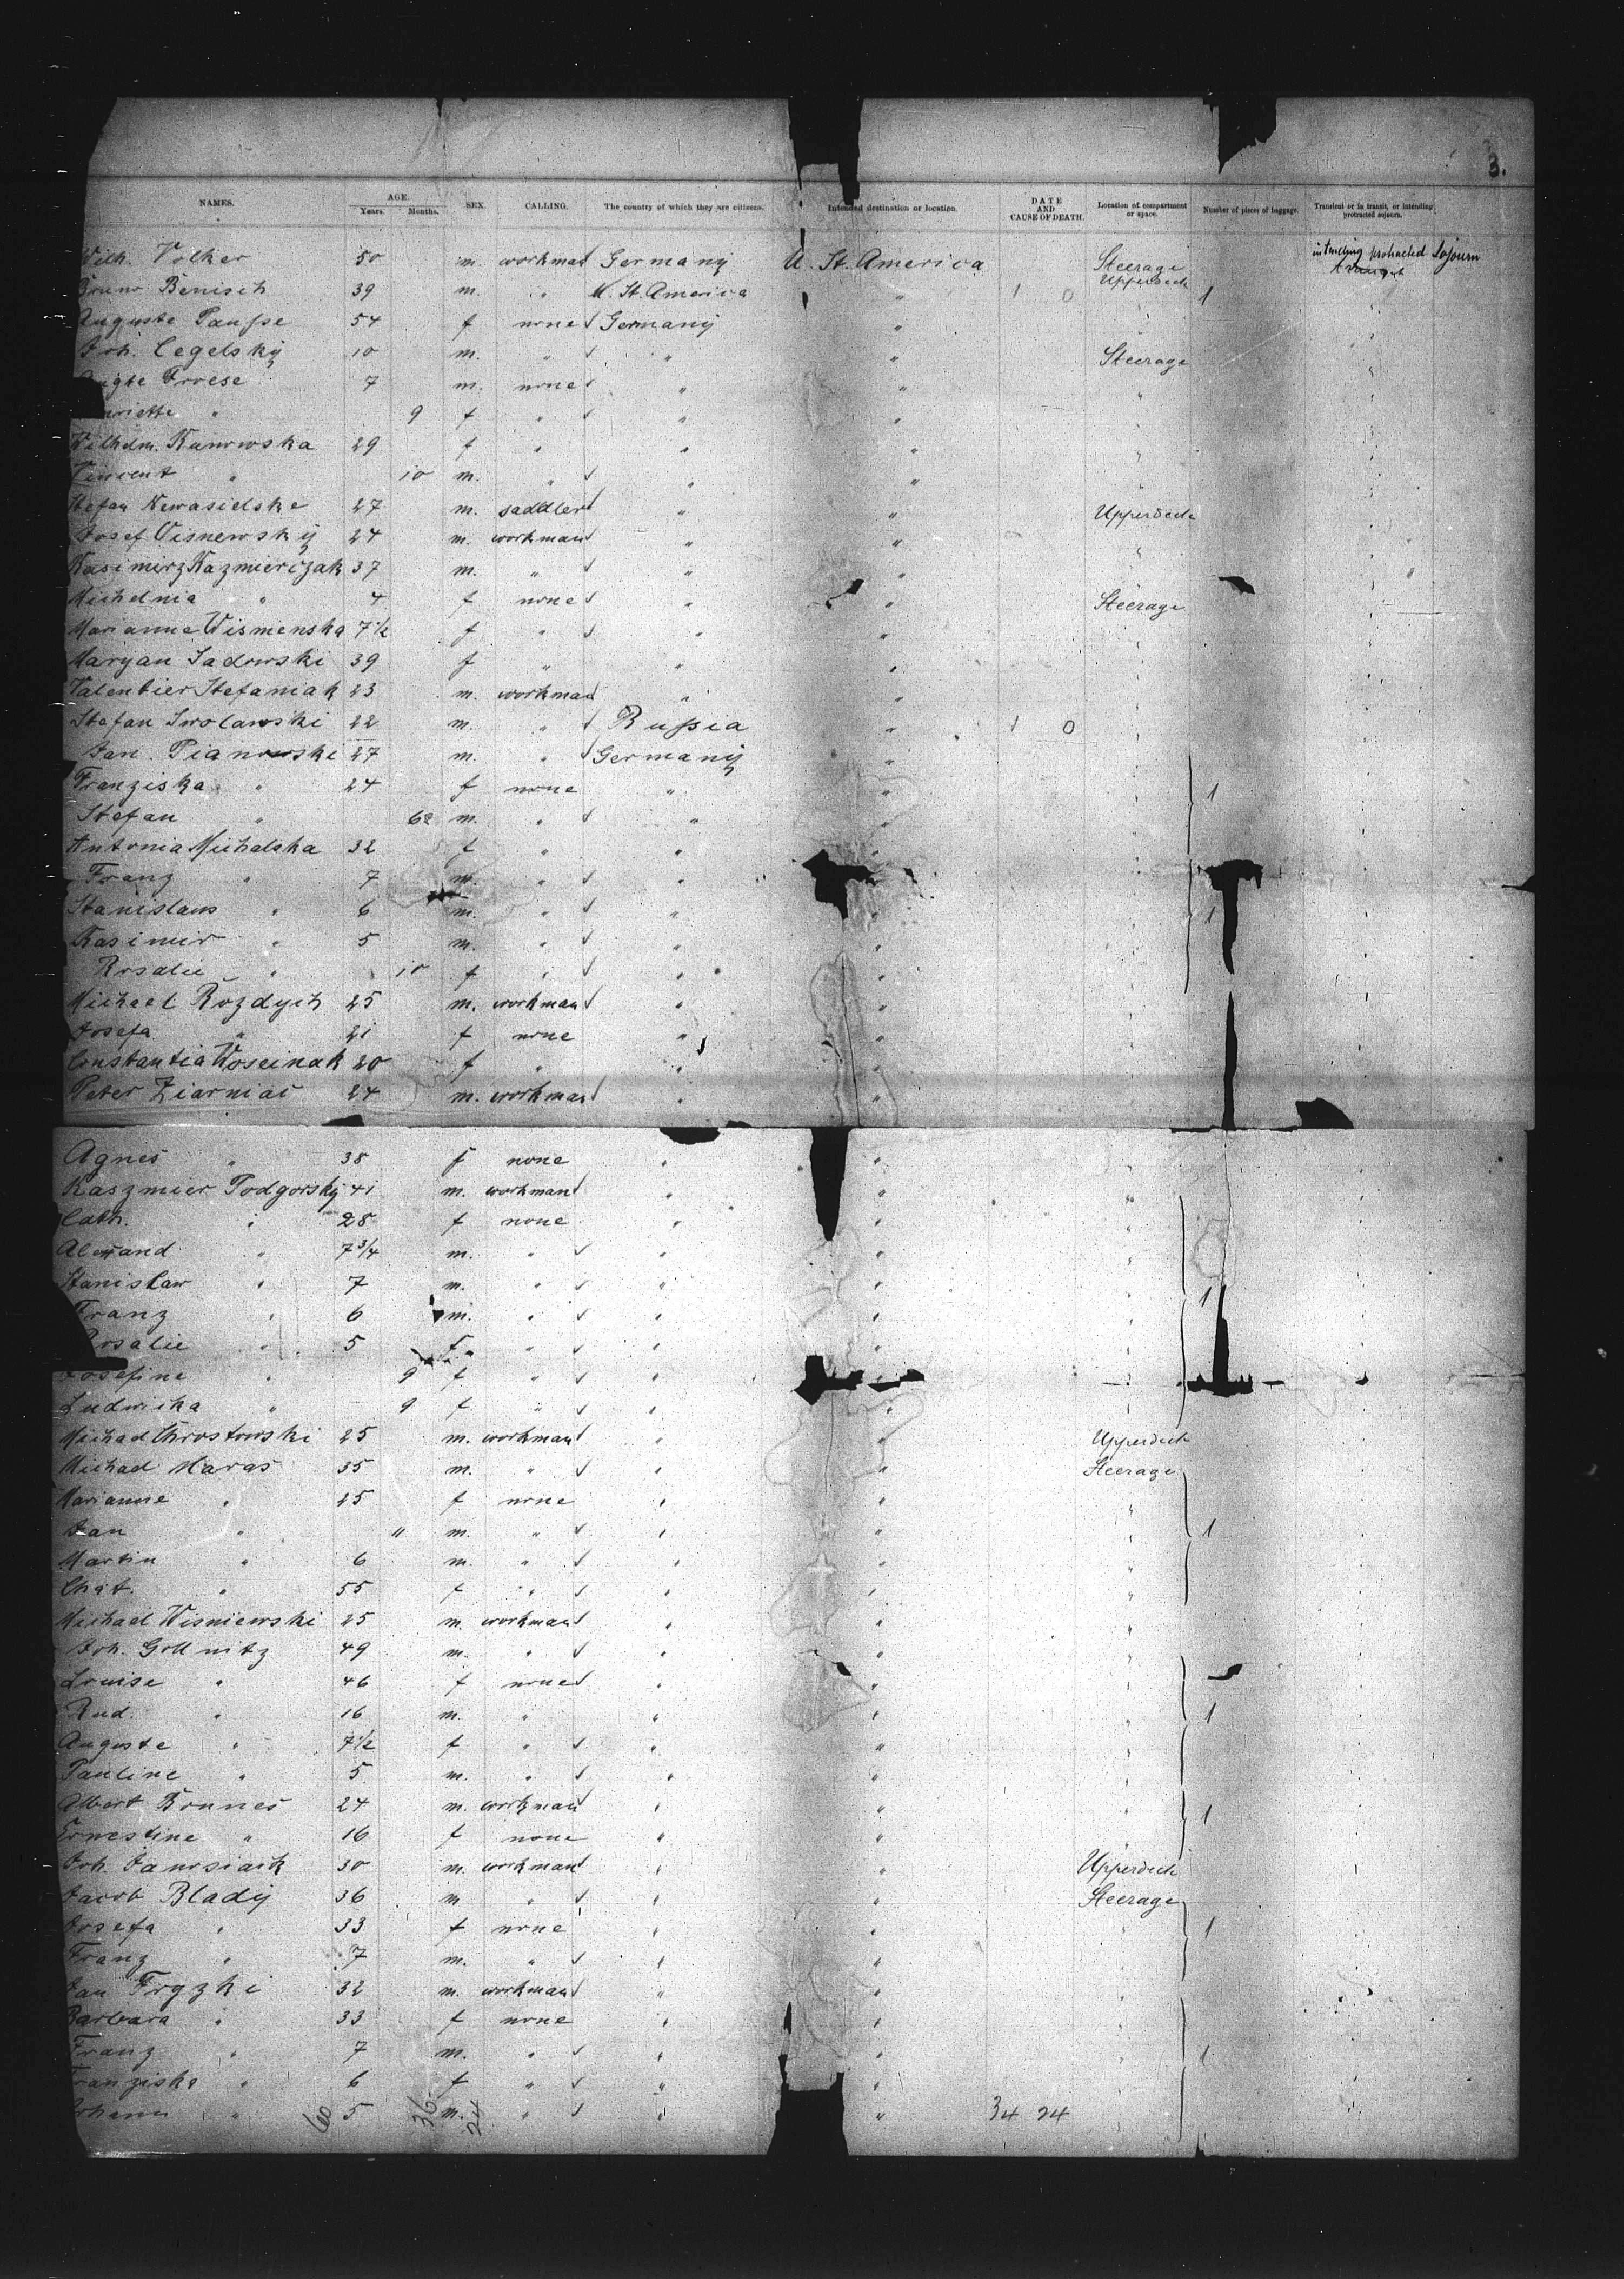 3.
NAMES. AGE. Years. Months. SEX. CALLING. The country of which they are citizens. Intended destination or location. DATE AND CAUSE OF DEATH. Location of compartment or space. Number of pieces of baggage. Transient or in transit, or intending protracted sojourn.
Wilh. Volker 50 m. workman Germany U. St. America Steerage intending protracted Sojourn
Bruno Benisch 39 m. " U. St. America " 1 0 Upperdeck 1
Auguste Pauße 54 f none Germany "
Joh. Cegelsky 10 m. " " " Steerage
Froese 7 m. none " " "
" 9 f " " "
Wilhelm. Kanowska 29 f " " "
Vincent " 10 m. " " "
Stefan 27 m. saddler " " Upperdeck
Josef Visnewsky 24 m. workman " " "
Kasimirz Kazmierczak 37 m. " " "
" 4 f none " " Steerage
Marianne Wismenska 7 1/2 f " " " "
Maryan Sadowski 39 f " " " "
Valentier Stefaniak 23 m. workman " " "
Stefan 22 m. " Rußia " 1 0
Jan. Pianowski 27 m. " Germany "
Franziska " 24 f none " " 1
Stefan " m. " " "
Antonia Michalska 32 f " " "
Franz " 7 m. " " "
Stanislaus " 6 m. " " " 1
Kasimir " 5 m. " " "
Rosalie " 10 f " " "
Michael Rozdych 25 m. workman " "
Josefa " 21 f none " "
Constantia Woseinak 20 f " " "
Peter Ziarniac 24 m. workman " "
Agnes " 38 f none " " "
Kaszmier Podgorsky 41 m. workman " " "
Cath. " 28 f none " " "
" 7 3/4 m. " " " "
Stanislaw " 7 m. " " " "
Franz " 6 m. " " " " 1
Rosalie " 5 f. " " " "
Josefine " 9 f " " "
Ludwika " 9 f " " " "
Michael Chrostowski 25 m. workman " " Upperdeck
Michael Maras 35 m. " " " Steerage
Marianne " 25 f none " " "
Jan " 11 m. " " " " 1
Martin " 6 m. " " " "
" 55 f " " " "
Michael Wisniewski 25 m. workman " " "
Joh. Gollnitz 49 m. " " " "
Louise " 46 f none " " "
Rud. " 16 m. " " " " 1
Auguste " 7 1/2 f " " " "
Pauline " 5 m. " " " "
Albert Bonnes 24 m. workman " " " 1
Ernestine " 16 f none " " "
Joh. 30 m. workman " " Upperdeck
Jacob Blady 36 m " " " Steerage
Josefa " 33 f none " " " 1
Franz " 7 m. " " " "
Jan Frgzki 32 m. workman " " "
Barbara " 33 f none " " "
Franz " 7 m. " " " " 1
Franziska " 6 f " " " "
Johann " 5 m. " " "
60 36 24 34 24